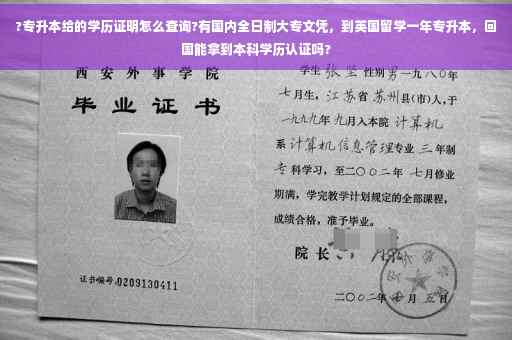 ?专升本给的学历证明怎么查询?有国内全日制大专文凭，到英国留学一年专升本，回
国能拿到本科学历认证吗?
西安外事学院
毕业证书
证书编号:0209130411
学生张坚性别男一九八〇年
七月生，江苏省苏州县(市)人,于
一九九九年九月入本院计算机
系计算机信息管理专业三年制
专科学习，至二〇〇二年七月修业
期满，学完教学计划规定的全部课程，
成绩合格，准予毕业。
院长
二〇〇二年七月五日